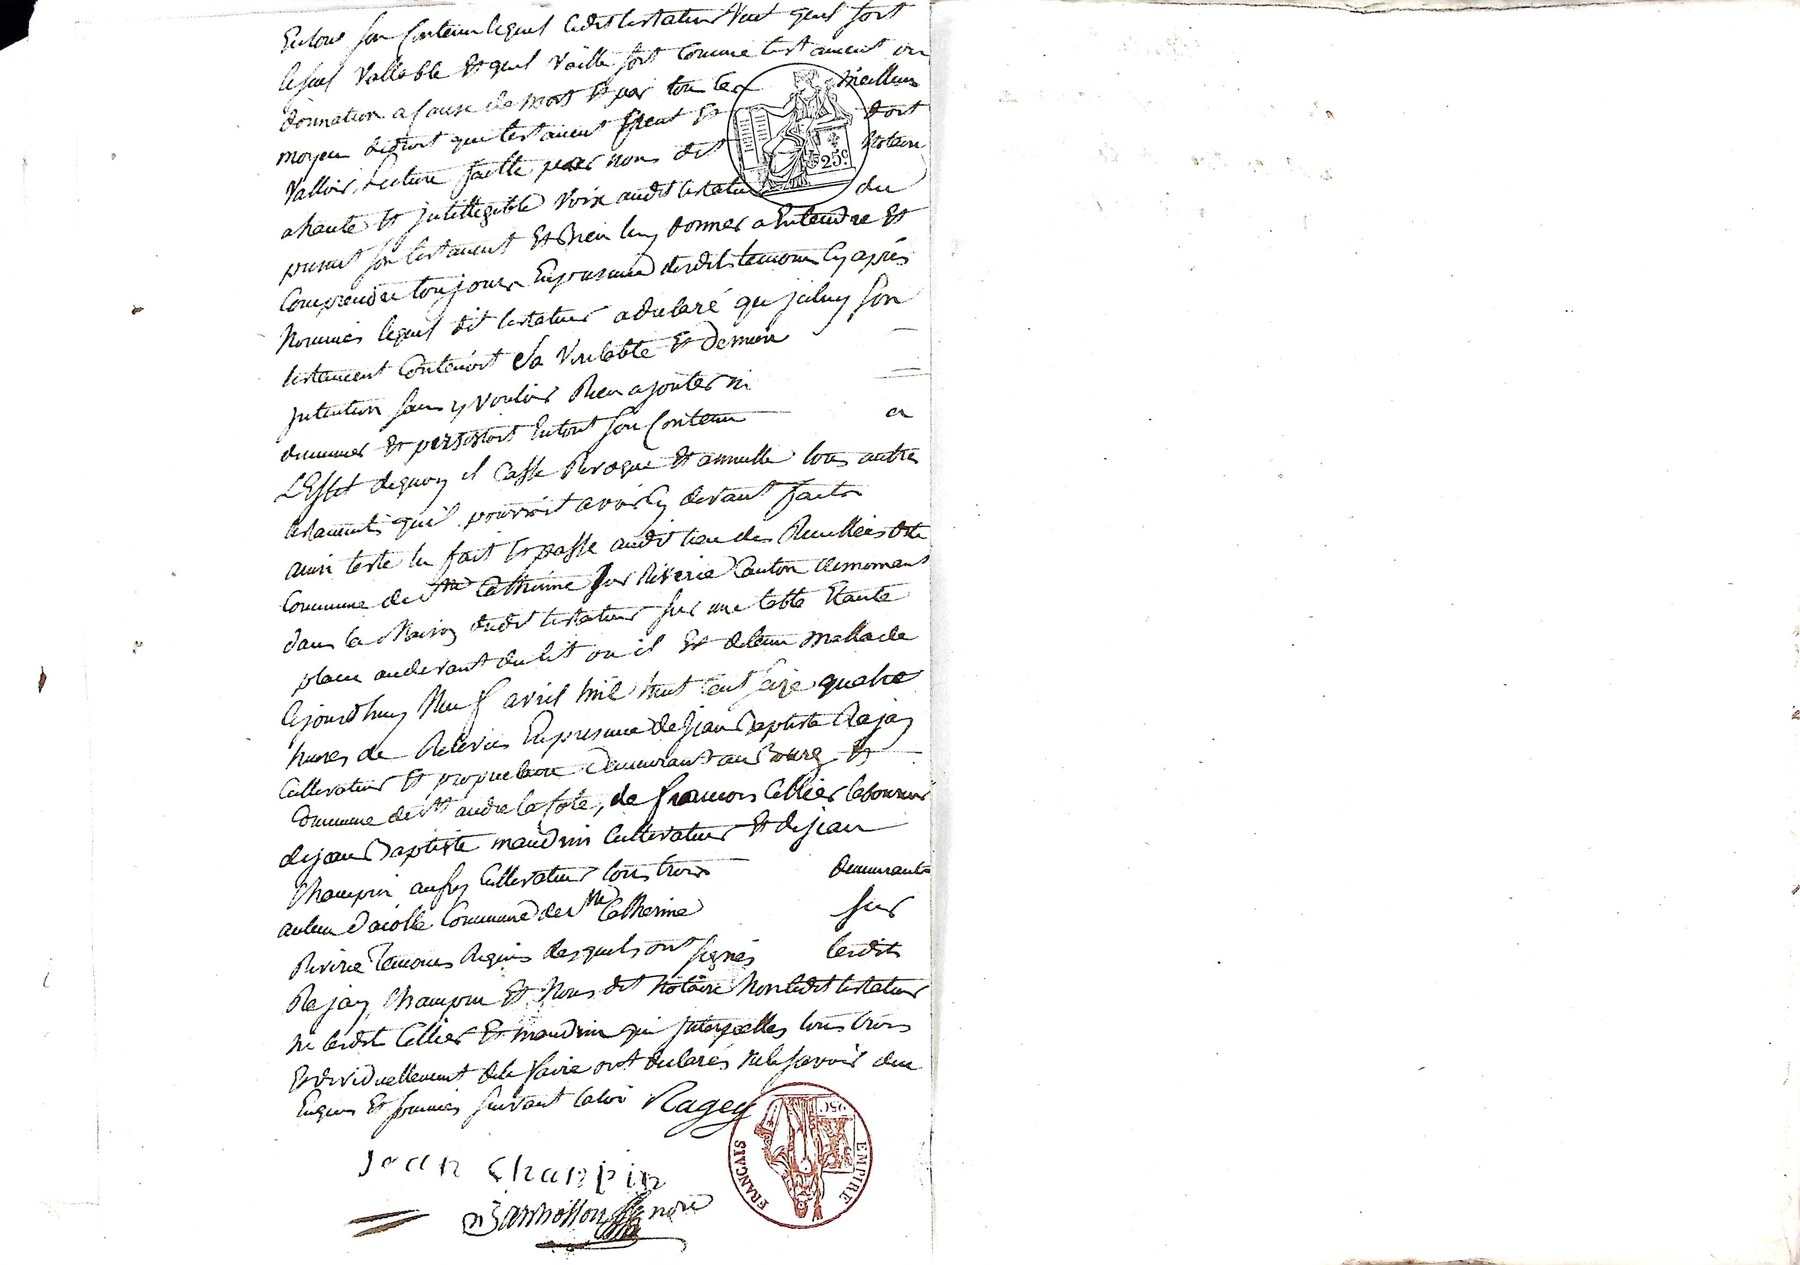 En tout son Contenu lequel ledit testateur veut quil soit
le seul vallable et quil vaille soit comme testament ou
donnation a cause de mort et par tou les meilleur
moyen dedroit que testament peut et doit
valloir, Lecture faitte par nous dit Notaire
a haute et jntelligible voix audit testateur du
present son testament et Bien luy donner a Entendre et
Comprendre toujours En presence desdits temoins Cy après
Nommés lequel dit testateur a declaré que jcluy son
testament Contenoit sa Veritable et Derniere
jntention sans y vouloir Rien ajouter ni
diminuer et persistoit En tout son Contenu a
L'Effet dequoy il Casse Revoque et annulle tous autres
testaments quil pourroit avoir Cy devant faits
ainsi testé lu fait et passé audit lieu des
Commune de Ste Catherine sur Riverie Canton de mornant
dans la Maison dudit testateur sur une table Etante
placée audevant du lit ou il Est detenu mallade
Cejourdhuy Neuf avril mil huit Cent seize quatre
heures de Relevée En presence de jean Baptiste Ragey
Cultivateur et proprietaire Demeurant au Bourg et
Commune de St andré la Cote, de francois Cellier laboureur
de jean Baptiste maudrin Cultivateur et de jean
Champin aussy Cultivateur tous trois demeurants
au lieu Commune de Ste Catherine sur
Riverie Temoins Requis desquels ont signés lesdits
Ragey, Champin et Nous dit Notaire Non ledit testateur
ni lesdits Cellier et maudrin qui jnterpellés tous trois
Individuellement de le faire ont declarés ne le savoir de ce
Enquis et sommés suivant la loi Ragey
Jean Champin
25 C.
25C
EMPIRE FRANCAIS